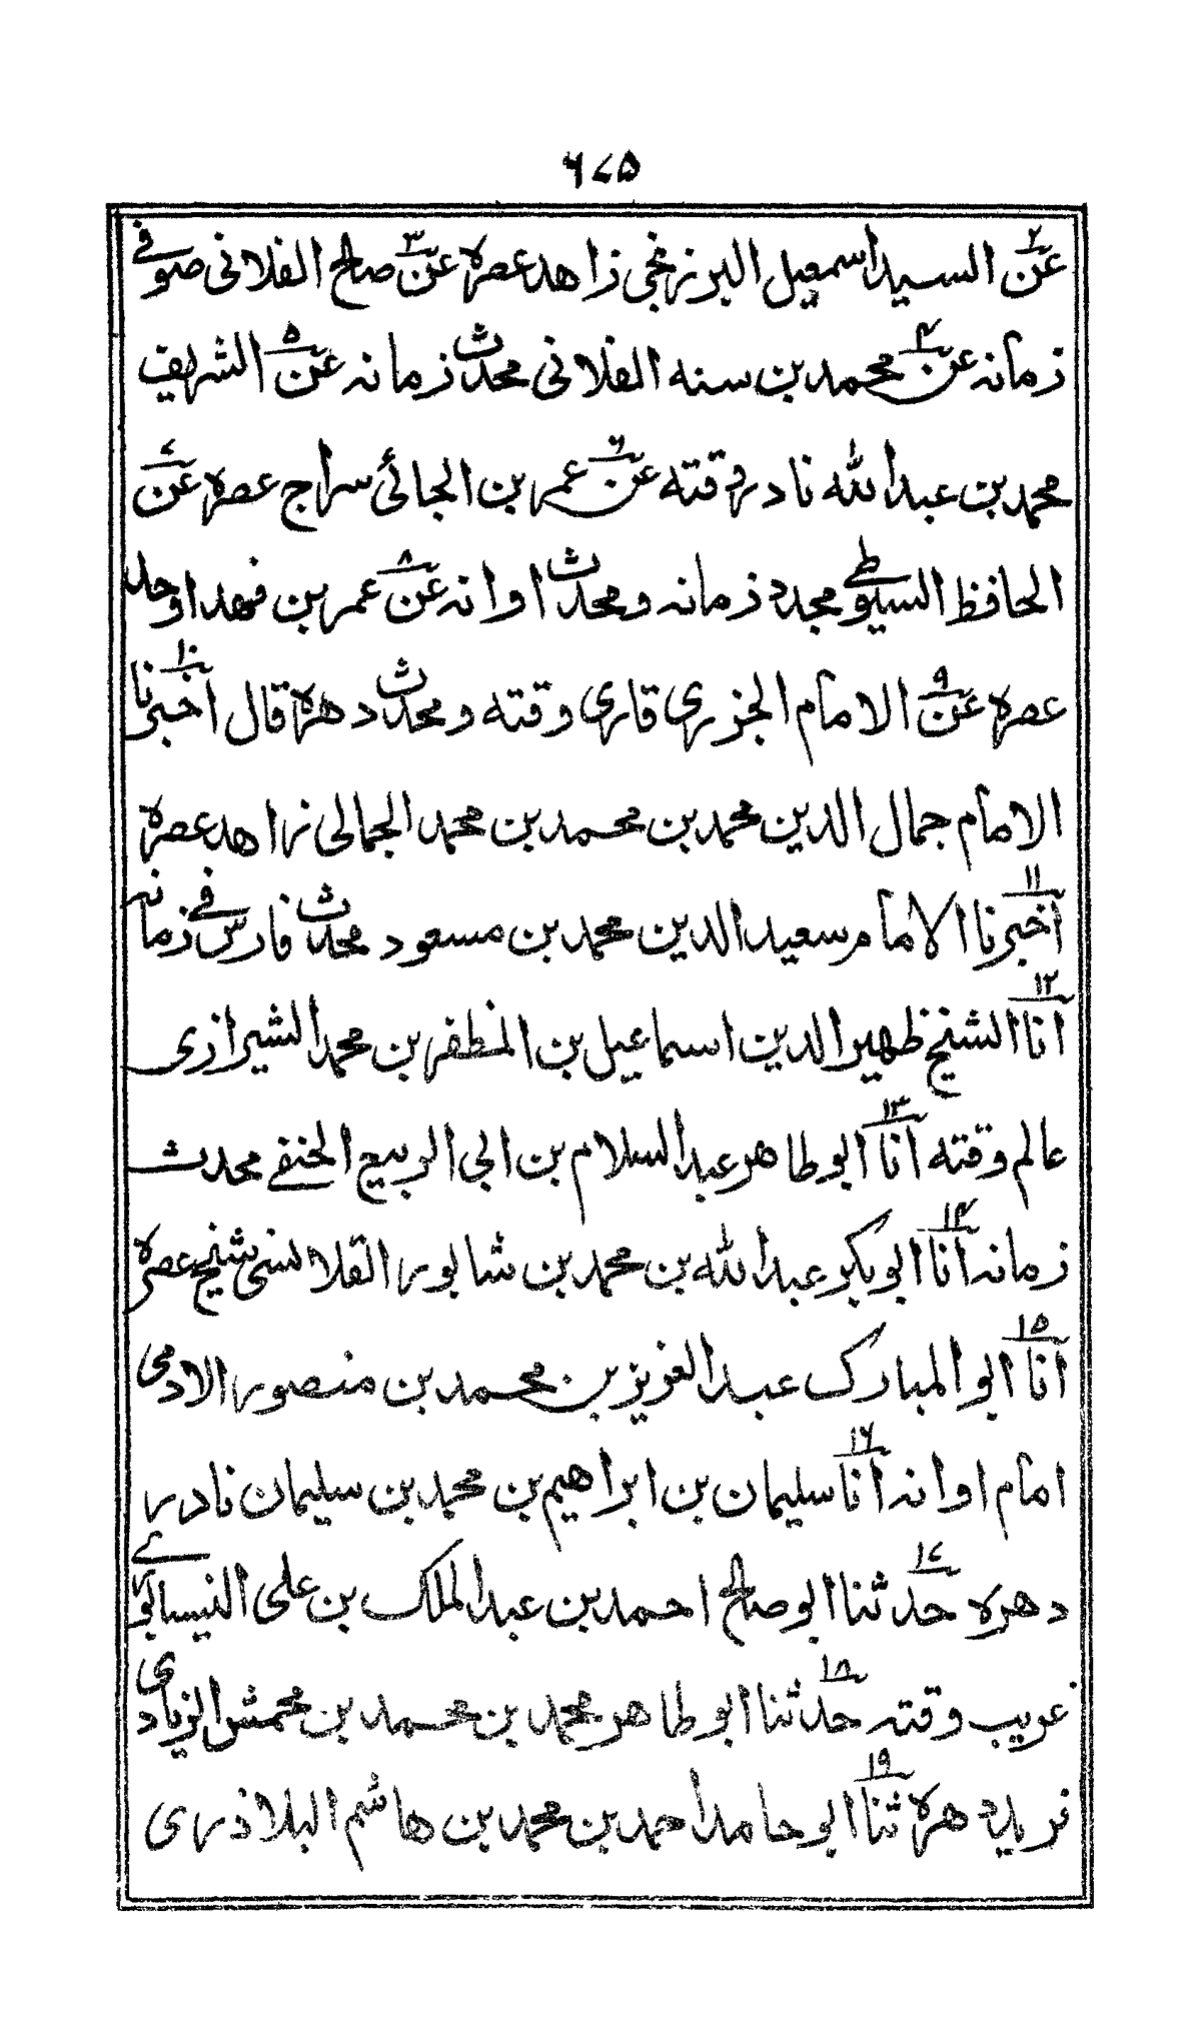 ٦٧٥
عن٢ السيد اسمعيل البرزنجي زاهد عصره عن٣ صالح الفلانى صوفى
زمانه عن٤ محمد بن سنه الفلانى محدث زمانه عن٥ الشريف
محمد بن عبد الله نادر وقته عن٦ عمر بن الجائى سراج عصره عن٧
الحافظ السيوطى مجدد زمانه و محدث اوانه عن٨ عمر بن فهد اوحد
عصره عن٩ الامام الجزرى قارى وقته و محدث دهره قال اخبرنا١٠
الامام جمال الدين محمد بن محمد بن محمد الجمالى زاهد عصره
اخبرنا١١ الامام سعيد الدين محمد بن مسعود محدث فارس فى زمانه
انا١٢ الشيخ ظهير الدين اسماعيل بن المظفر بن محمد الشيرازى
عالم وقته انا١٣ ابو طاهر عبد السلام بن ابى الربيع الحنفى محدث
زمانه انا١٤ ابو بكر عبد الله بن محمد بن شابور القلانسى شيخ عصره
انا١٥ ابو المبارك عبد العزيز بن محمد بن منصور الادمى
امام اوانه انا١٦ سليمان بن ابراهيم بن محمد بن سليمان نادر
دهره حدثنا١٧ ابو صالح احمد بن عبد الملك بن على النيسابورى
غريب وقته حدثنا١٨ ابو طاهر محمد بن محمد بن محمش الزيادى
فريد دهره ثنا١٩ ابو حامد احمد بن محمد بن هاشم البلاذرى